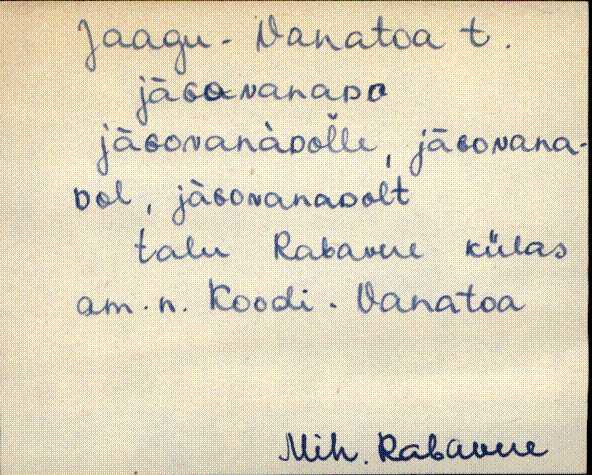 Jaagu-Vanatoa t.
jäGovanaDo
jäGovanàDolle, jäGovana-
Dol, jäGovanaDolt
talu Rabavere külas
am. n. Koodi-Vanatoa
Mih. Rabavere